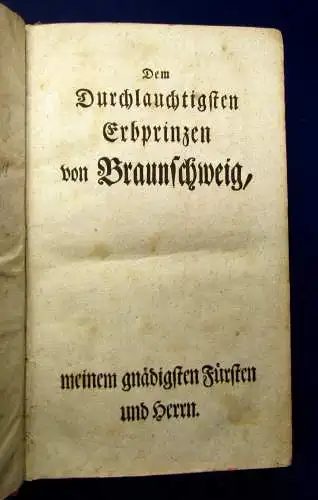 Dem
Durchlauchtigsten
Erbprinzen
von Braunſchweig,
meinem gnädigſten Fürſten
und Herrn.